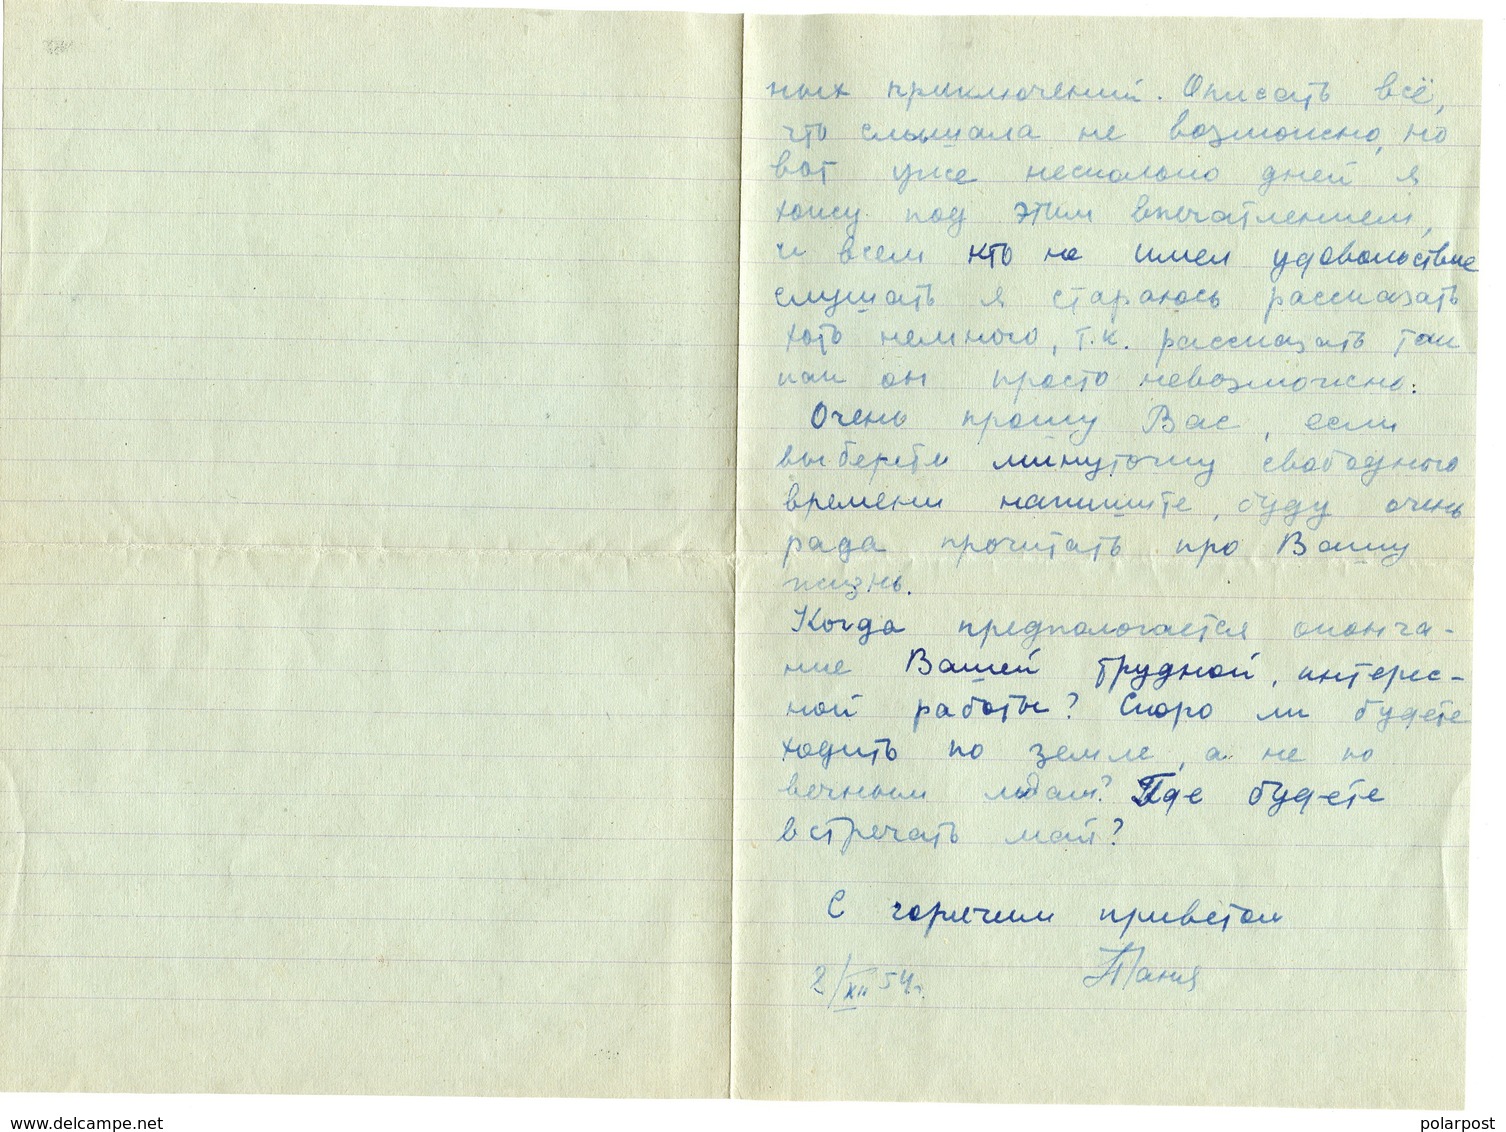 ных приключений. Описать всё,
что слышала не возможно, но
вот уже несколько дней я
хожу под этим впечатлением,
и всем кто не имел удовольствие
слушать я стараюсь рассказать
хоть немного, т.к. рассказать так
как он просто невозможно.
Очень прошу Вас, если
выберете минуточку свободного
времени напишите, буду очень
рада прочитать про Вашу
жизнь.
Когда предпологается оконча-
ние Вашей трудной, интерес-
ной работы? Скоро ли будете
ходить по земле, а не по
вечным льдам? Где будете
встречать май?
С горячим приветом
2/XII 54г. Таня
www.delcampe.net polarpost